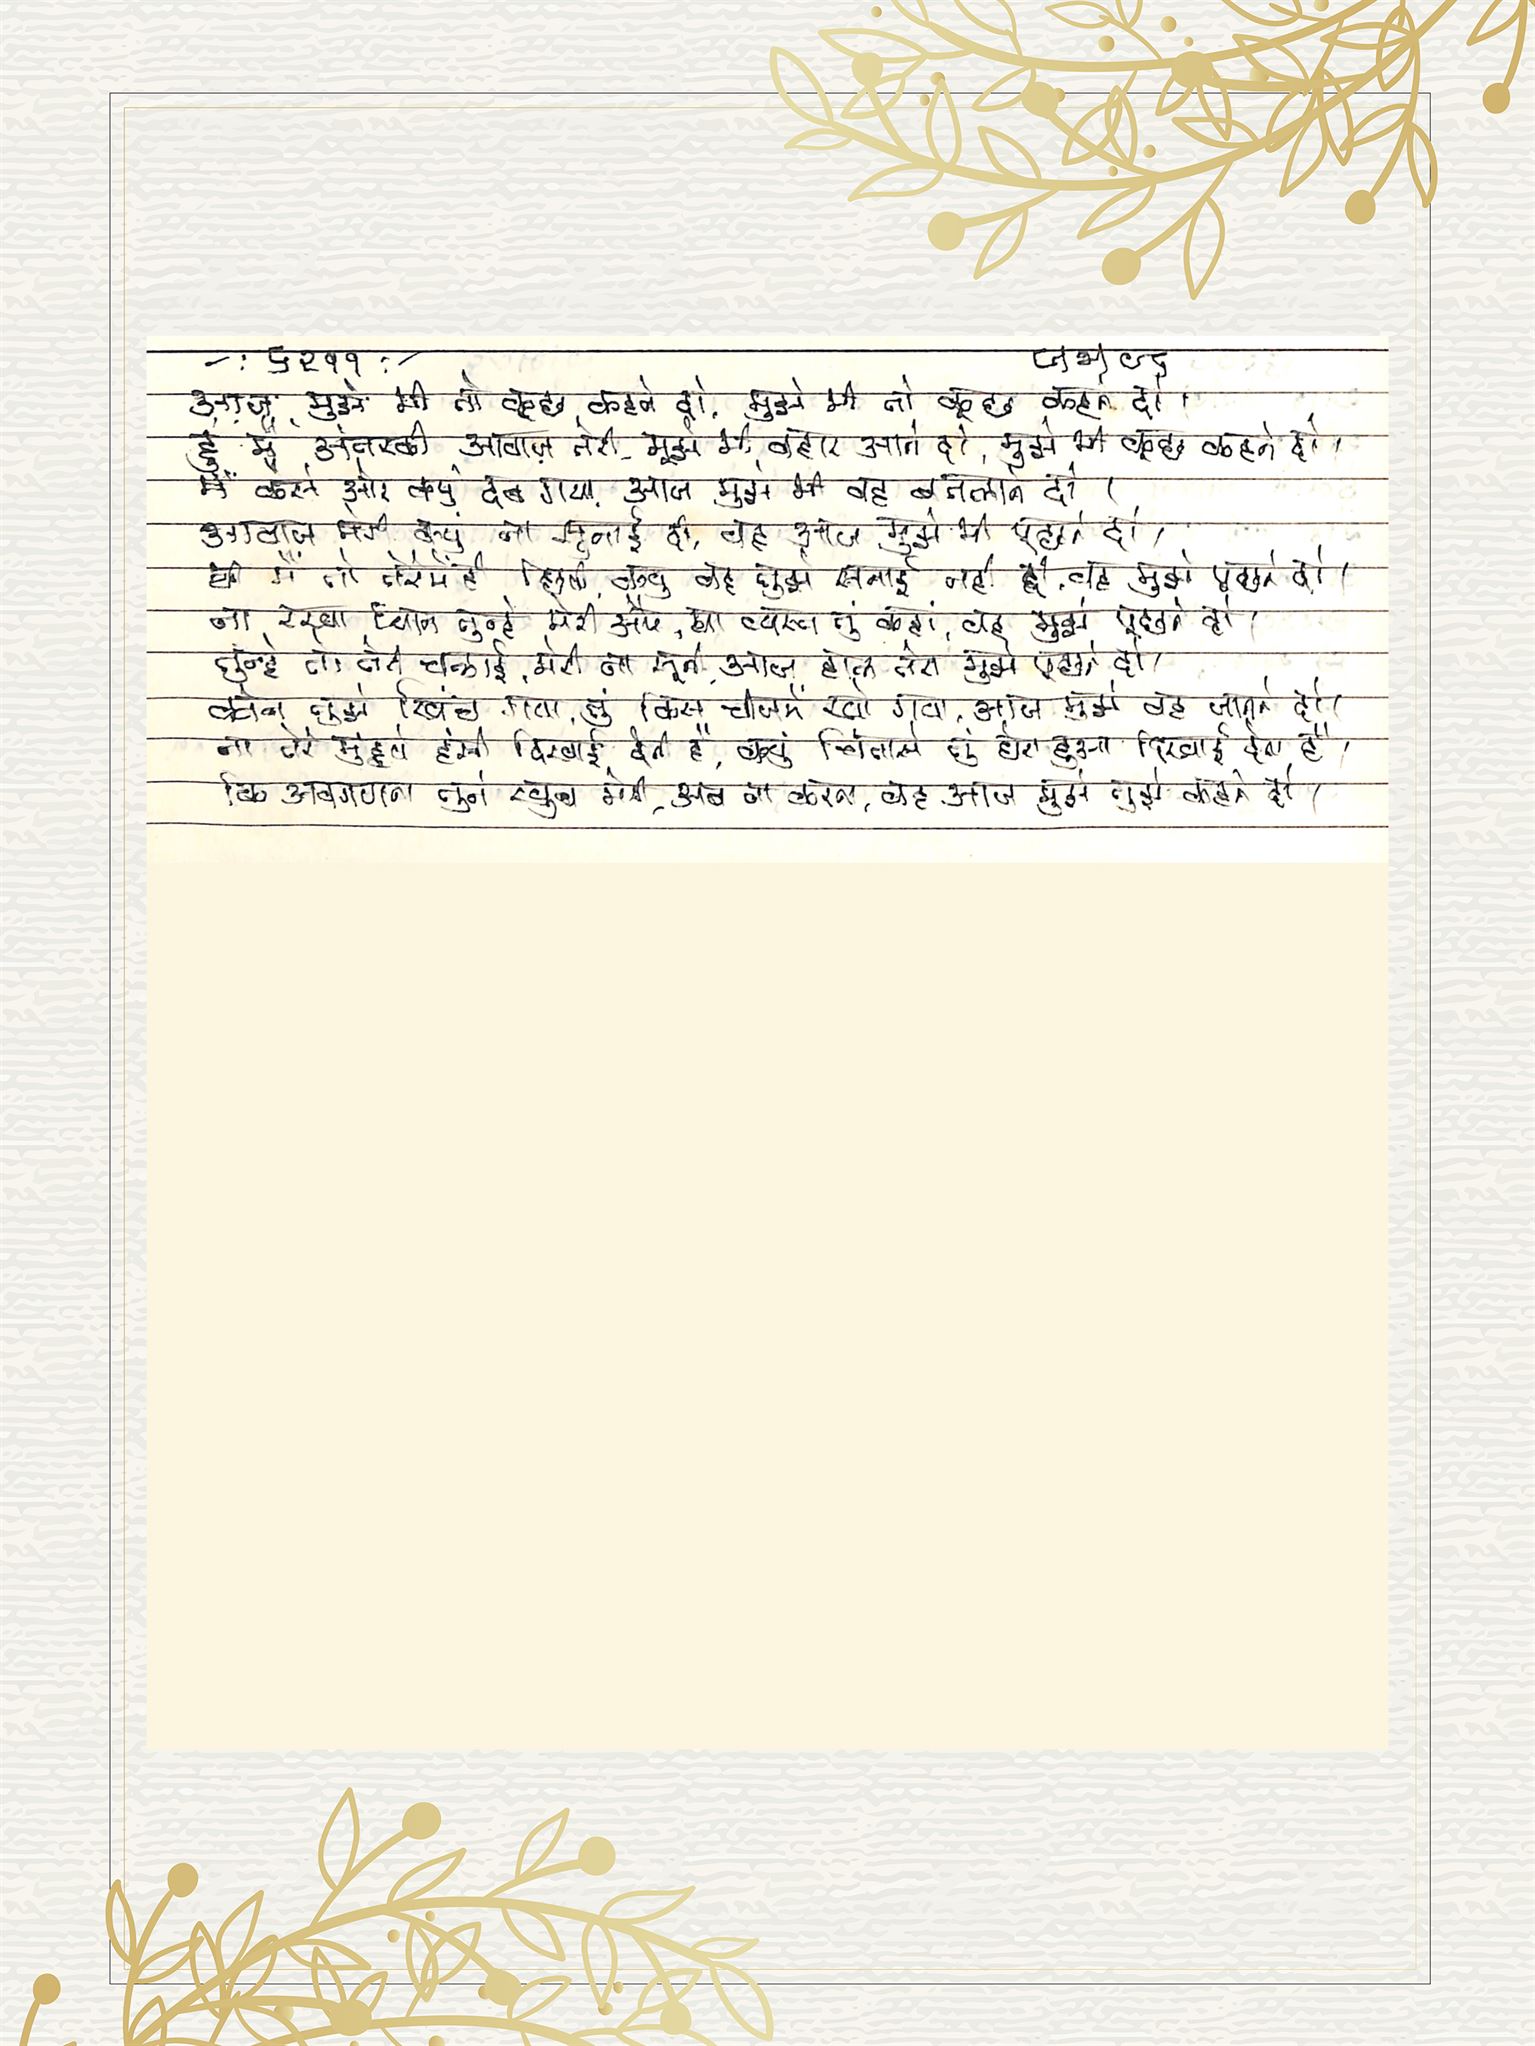 -: ६२११ :-
आज, मुझे भी तो कूछ कहने दो, मुझे भी तो कूछ कहने दो।
हुँ मैं अंतरकी आवाज़ तेरी, मूझे भी बहार आने दो, मुझे भी कूछ कहने दो।
मैं कैसे और क्युं दब गया, आज मुझे भी वह बतलाने दो।
आवाज मेरी क्युं ना सूनाई दी, वह आज मुझे भी पूछने दो।
मैं तो तेरेमें ही क्युं वह तुझे सुनाई नही दी, वह मुझे पूछने दो।
ना रखा ध्यान तुन्हे मेरी और, था व्यस्त तुं कहां, वह मुझे पूछने दो।
तुंन्हे तो तेरी चलाई, मेरी ना सूनी, आज हाल तेरा मुझे पूछने दो।
कौन तुझे खिंच गया, तुं किस चीजमें खो गया, आज मुझे वह जानने दो।
ना तेरे मुंहपे हंसी दिखाई देती है, क्युं चिंतासे तुं घेरा हुआ दिखाई देता है।
कि अवगणना तुने खुब मेरी, अब ना करना, वह आज मुझे तुझे कहने दो।